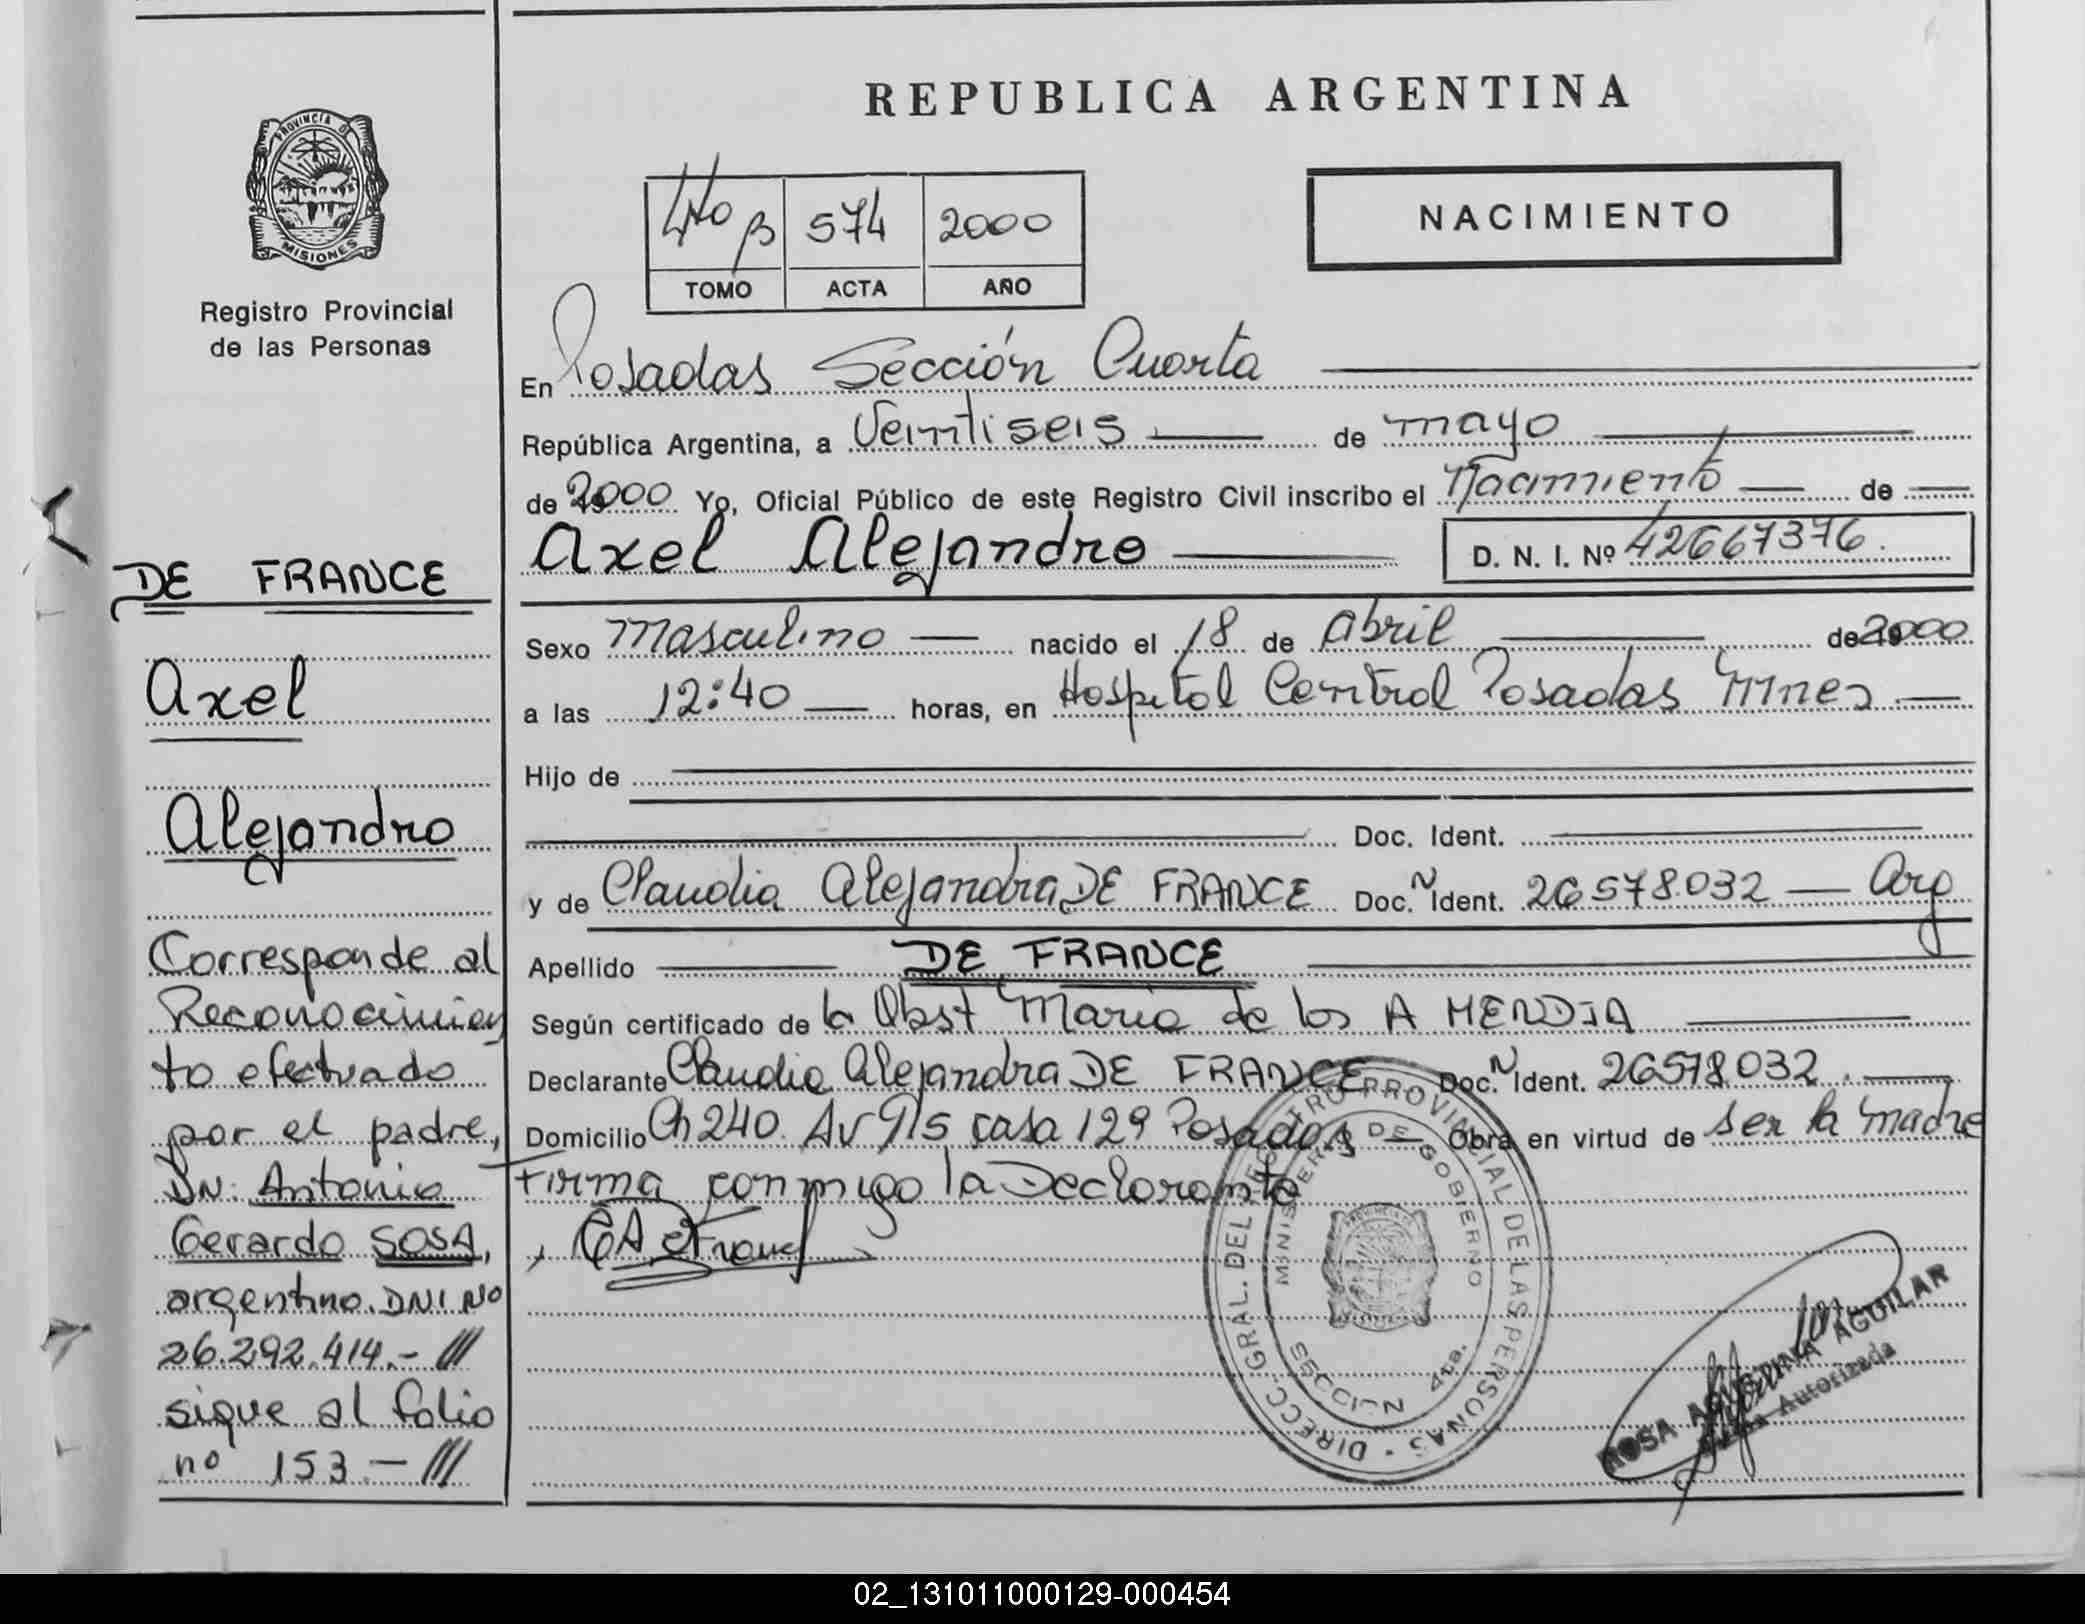 PROVINCIA DE
MISIONES
Registro Provincial
de las Personas
DE FRANCE
Axel
Alejandro
Corresponde al
Reconocimien
to efectuado
por el padre,
DN. Antonio
Gerardo SOSA,
argentino. DNI Nº
26.292.414.- ///
sigue al folio
nº 153.- ///
REPUBLICA ARGENTINA
NACIMIENTO
4to B 574 2000
TOMO ACTA AÑO
En Posadas Sección Cuarta
República Argentina, a Veintiseis de mayo
de 2000 Yo, Oficial Público de este Registro Civil inscribo el Nacimiento de
Axel Alejandro D. N. I. Nº 42667376.
Sexo Masculino nacido el 18 de abril de 2000
a las 12:40 horas, en Hospital Central Posadas Mnes
Hijo de
Doc. Ident.
y de Claudia Alejandra DE FRANCE Doc. N Ident. 26578.032 Arg
Apellido DE FRANCE
Según certificado de la Obst Maria de los A MENDIA
Declarante Claudia Alejandra DE FRANCE Doc. N Ident. 26578.032.
Domicilio Ch 240. Av 915 casa 129 Posadas Obra en virtud de ser la madre
Firma conmigo la Declarante
DIRECC. GRAL. DEL REGISTRO PROVINCIAL DE LAS PERSONAS
MINISTERIO DE GOBIERNO
SECCION 4ta.
ROSA AGUSTINA AGUILAR
Autorizada
02_131011000129-000454